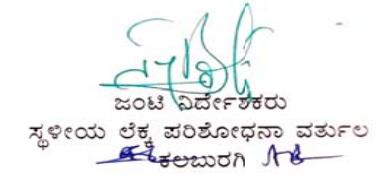 ಜಂಟಿ ನಿರ್ದೇಶಕರು
ಸ್ಥಳೀಯ ಲೆಕ್ಕ ಪರಿಶೋಧನಾ ವರ್ತುಲ
ಕಲಬುರಗಿ